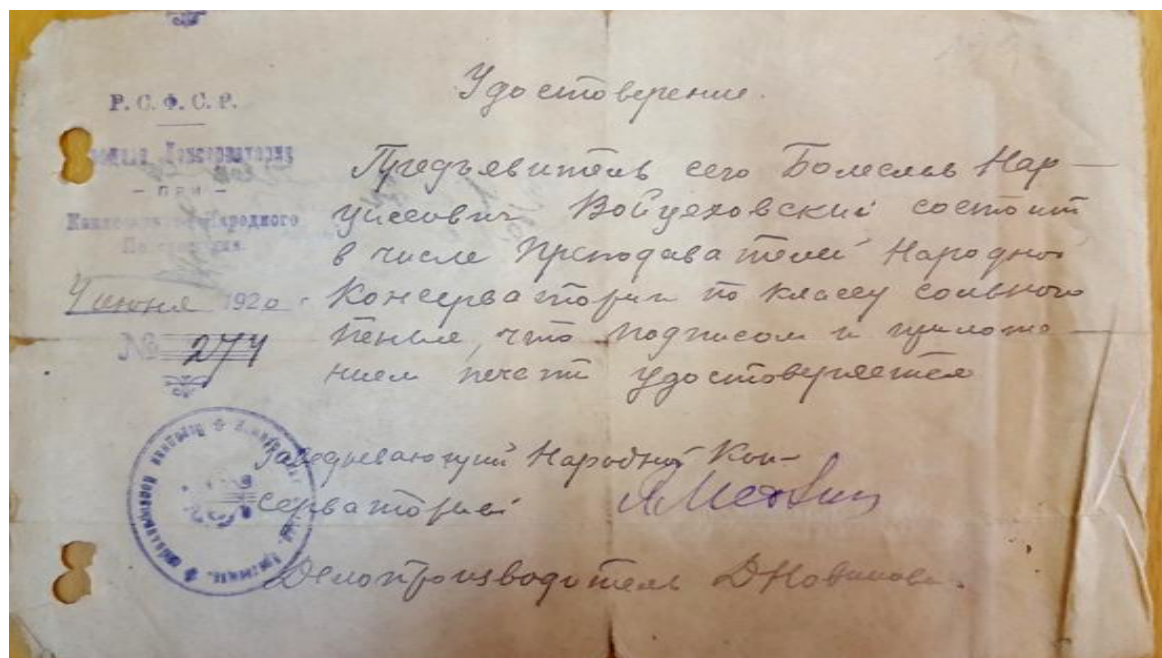 Р. С. Ф. С. Р.
Консерватория
— при —
Народного
4 июня 1920 г.
№ 274
Удостоверение.
Предъявитель сего Болеслав Нар—
циссович Войцеховский состоит
в числе преподавателей Народной
Консерватории по классу сольного
пения, что подписом и приложе—
нием печати удостоверяется
Заведывающий Народной Кон—
серваторией
Делопроизводитель Д Новикова.